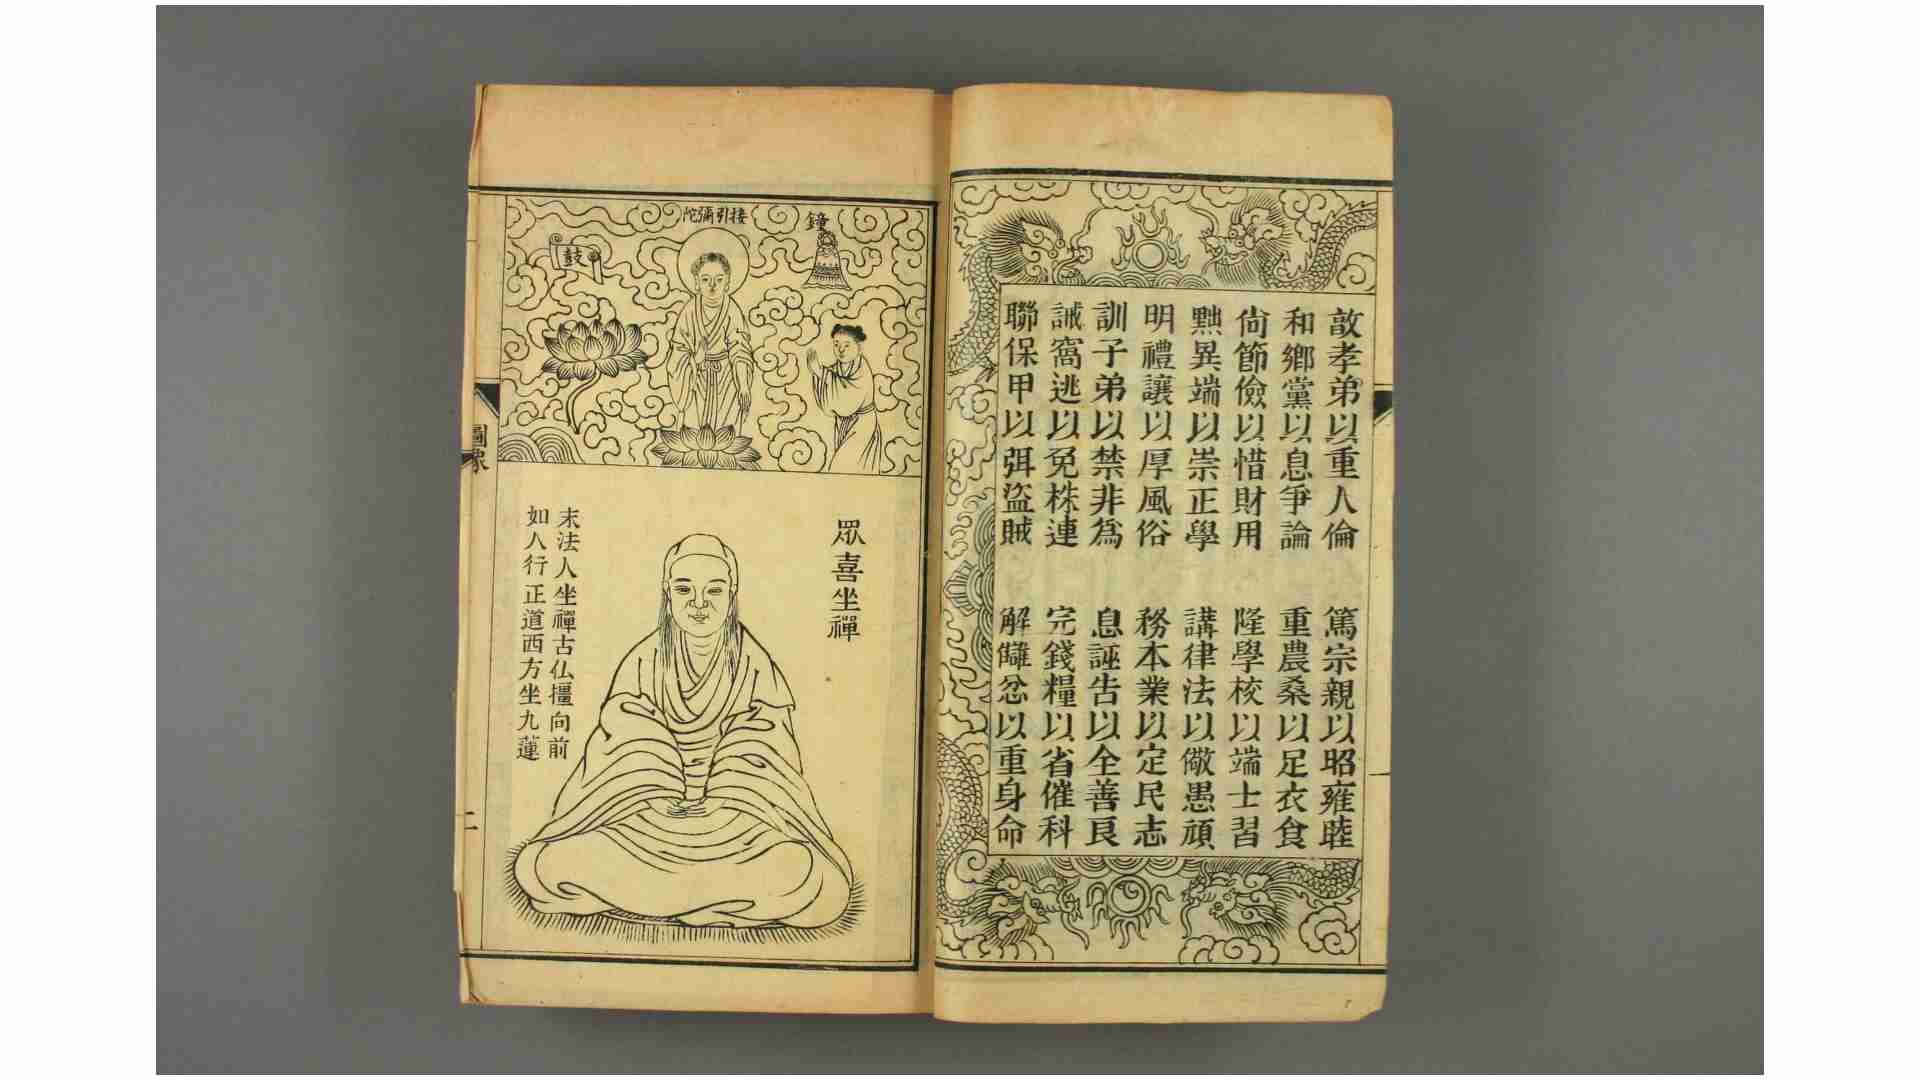 敦孝弟以重人倫 篤宗親以昭雍睦
和鄉黨以息爭論 重農桑以足衣食
尙節儉以惜財用 隆學校以端士習
黜異端以崇正學 講律法以儆愚頑
明禮讓以厚風俗 務本業以定民志
訓子弟以禁非爲 息誣告以全善良
誡窩逃以免株連 完錢糧以省催科
聯保甲以弭盜賊 解讎忿以重身命
鐘
接引彌陀
鼓
眾喜坐禪
末法人坐禪古仏橿向前
如人行正道西方坐九蓮
圖像
二